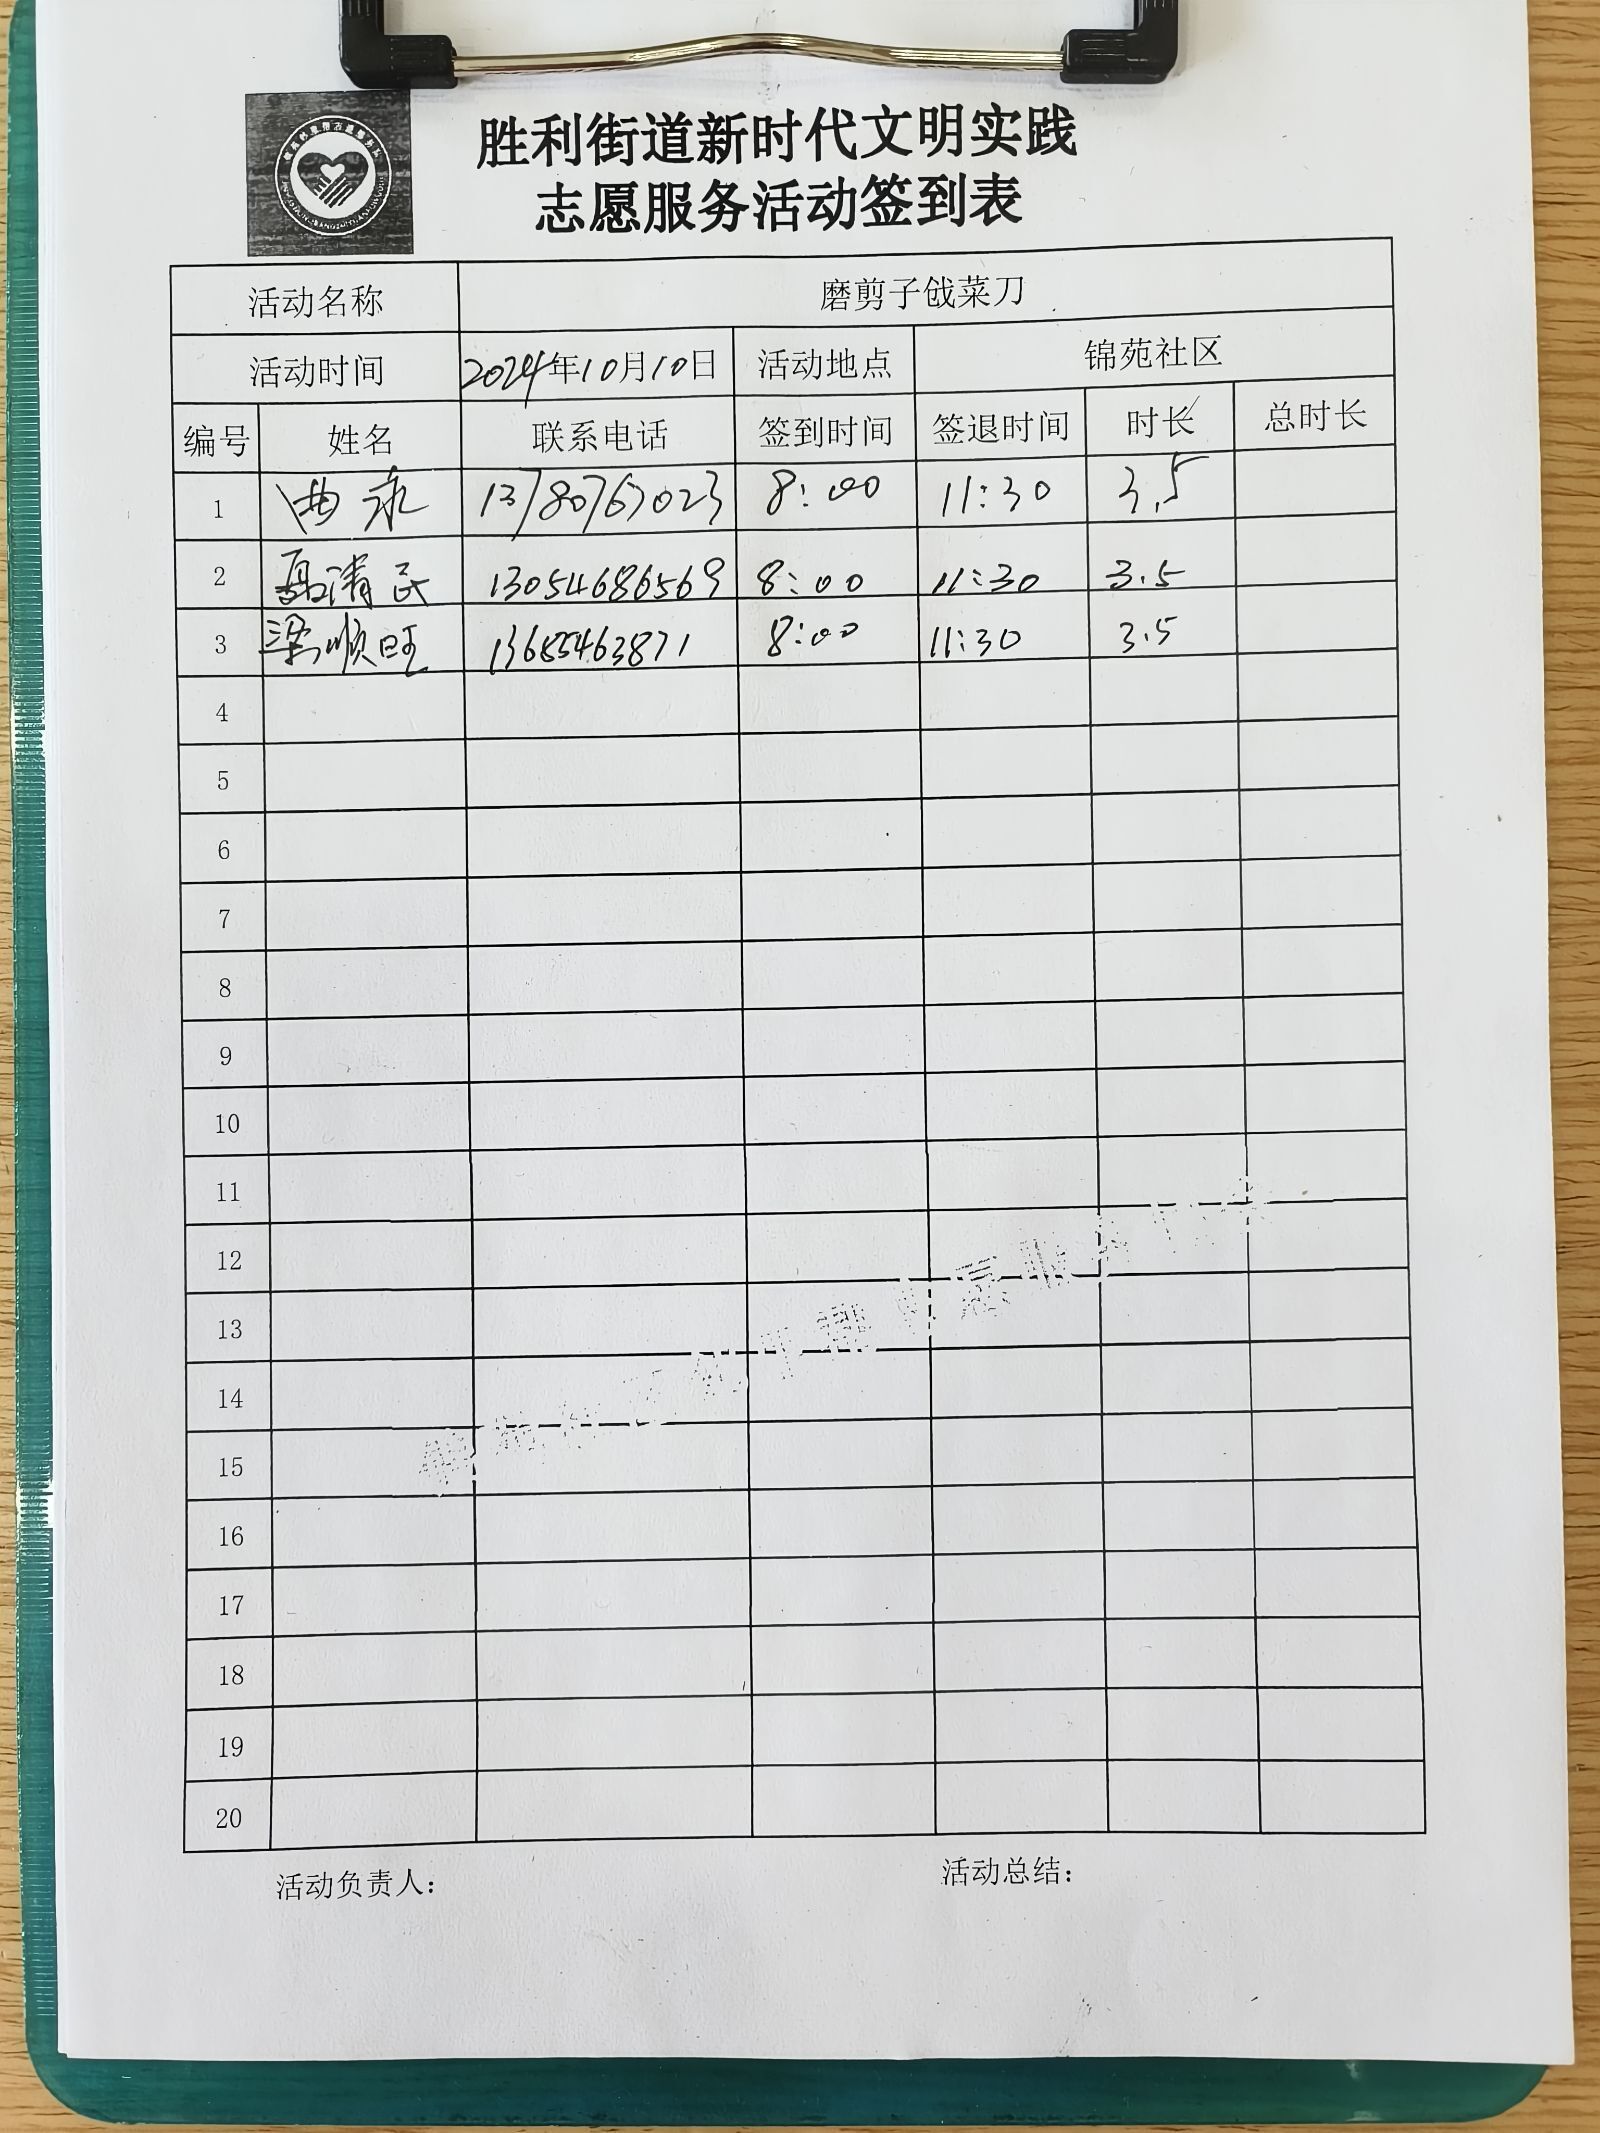 胜利街道新时代文明实践
志愿服务活动签到表
活动名称 磨剪子戗菜刀
活动时间 2024年10月10日 活动地点 锦苑社区
编号 姓名 联系电话 签到时间 签退时间 时长 总时长
1 曲永 13780767023 8:00 11:30 3.5
2 聂清民 13054686569 8:00 11:30 3.5
3 梁顺旺 13685463871 8:00 11:30 3.5
4
5
6
7
8
9
10
11
12
13
14
15
16
17
18
19
20
活动负责人: 活动总结: